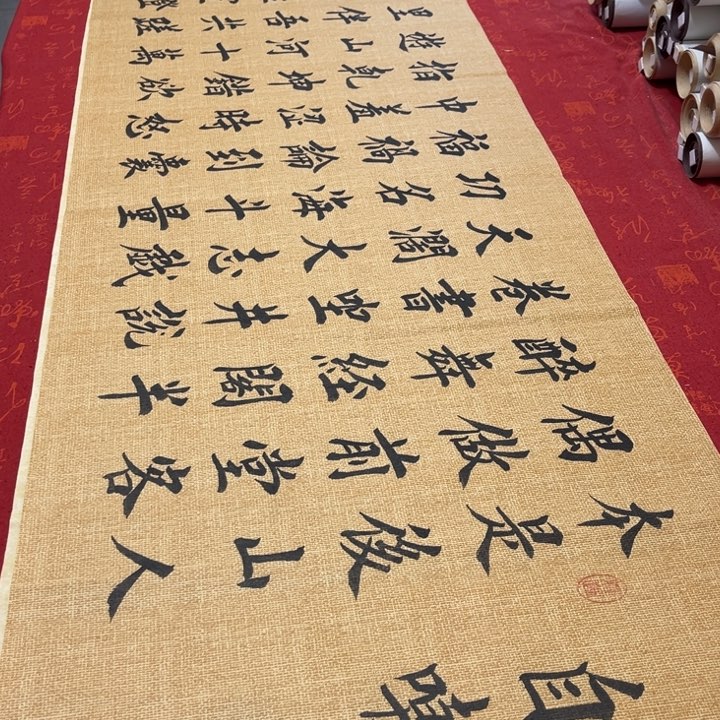 自嘲
本是後山人
偶做前堂客
醉舞經閣半
卷書坐井説
天闊大志戲
功名海斗量
福禍論到囊
中羞澀時怒
指乾坤錯欲
遊山河十萬
里伴吾共蹉